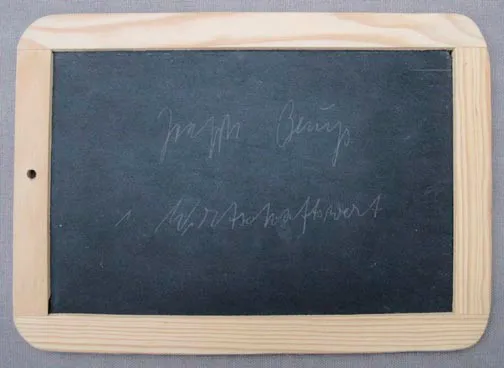 Joseph Beuys
1 Wirtschaftswert